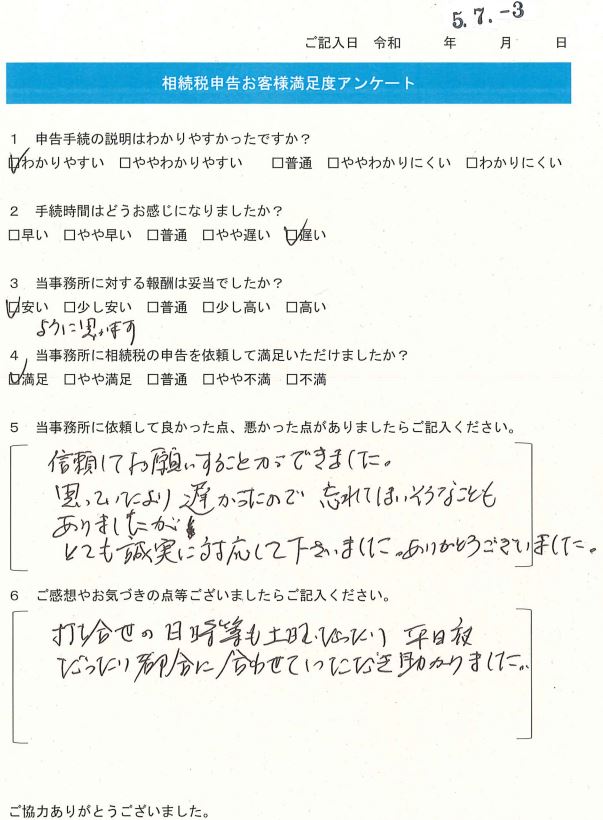 5.7.-3
ご記入日　令和　　年　　月　　日
相続税申告お客様満足度アンケート
1　申告手続の説明はわかりやすかったですか？
☑わかりやすい　□ややわかりやすい　　□普通　□ややわかりにくい　□わかりにくい
2　手続時間はどうお感じになりましたか？
□早い　□やや早い　□普通　□やや遅い　☑遅い
3　当事務所に対する報酬は妥当でしたか？
☑安い　□少し安い　□普通　□少し高い　□高い
ように思います
4　当事務所に相続税の申告を依頼して満足いただけましたか？
☑満足　□やや満足　□普通　□やや不満　□不満
5　当事務所に依頼して良かった点、悪かった点がありましたらご記入ください。
信頼してお願いすることができました。
思っていたより遅かったので忘れてしまいそうなことも
ありましたが
とても誠実に対応して下さいました。ありがとうございました。
6　ご感想やお気づきの点等ございましたらご記入ください。
打ち合せの日時等も土日だったり平日夜
だったり都合に合わせていただき助かりました。
ご協力ありがとうございました。